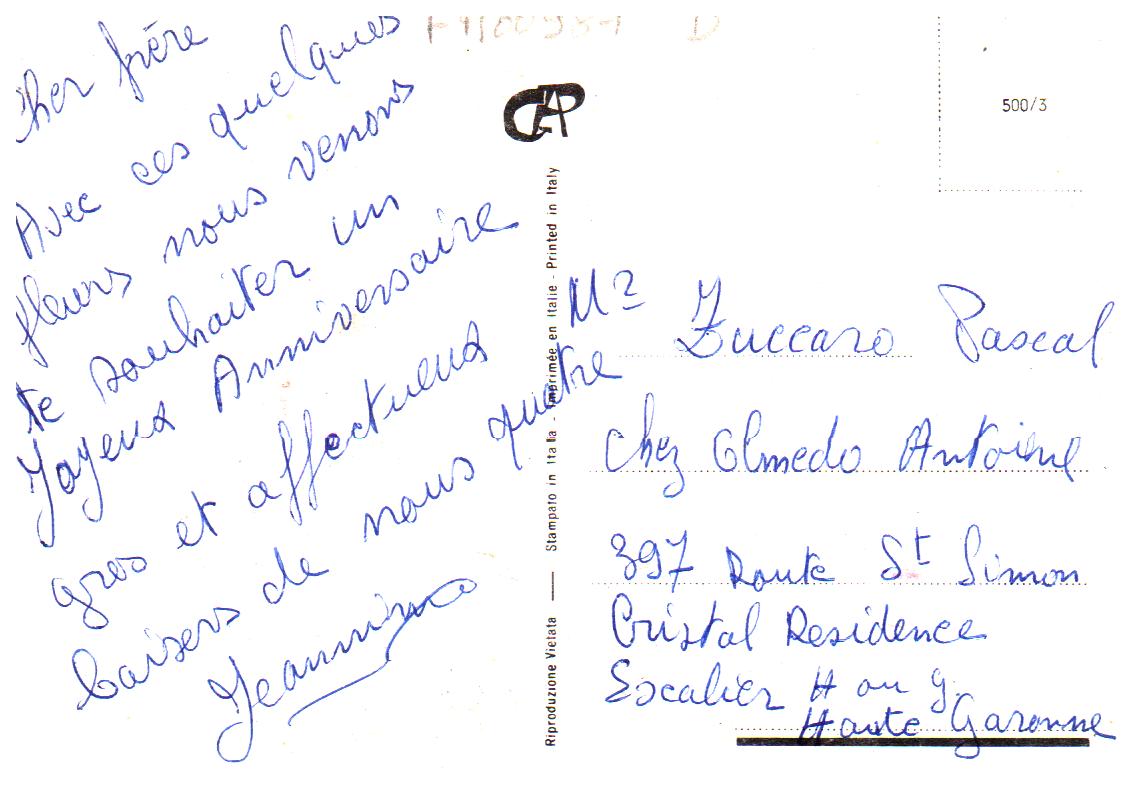 Cher frère
Avec ces quelques
fleurs nous venons
te souhaiter un
Joyeux Anniversaire
gros et affectueux
baisers de nous quatre
CAP
500/3
Riproduzione Vietata — Stampato in Italia - Imprimée en Italie - Printed in Italy
Mr Zuccaro Pascal
Chez Olmedo Antoine
397 Route St Simon
Cristal Residence
Escalier H ou G
Haute Garonne